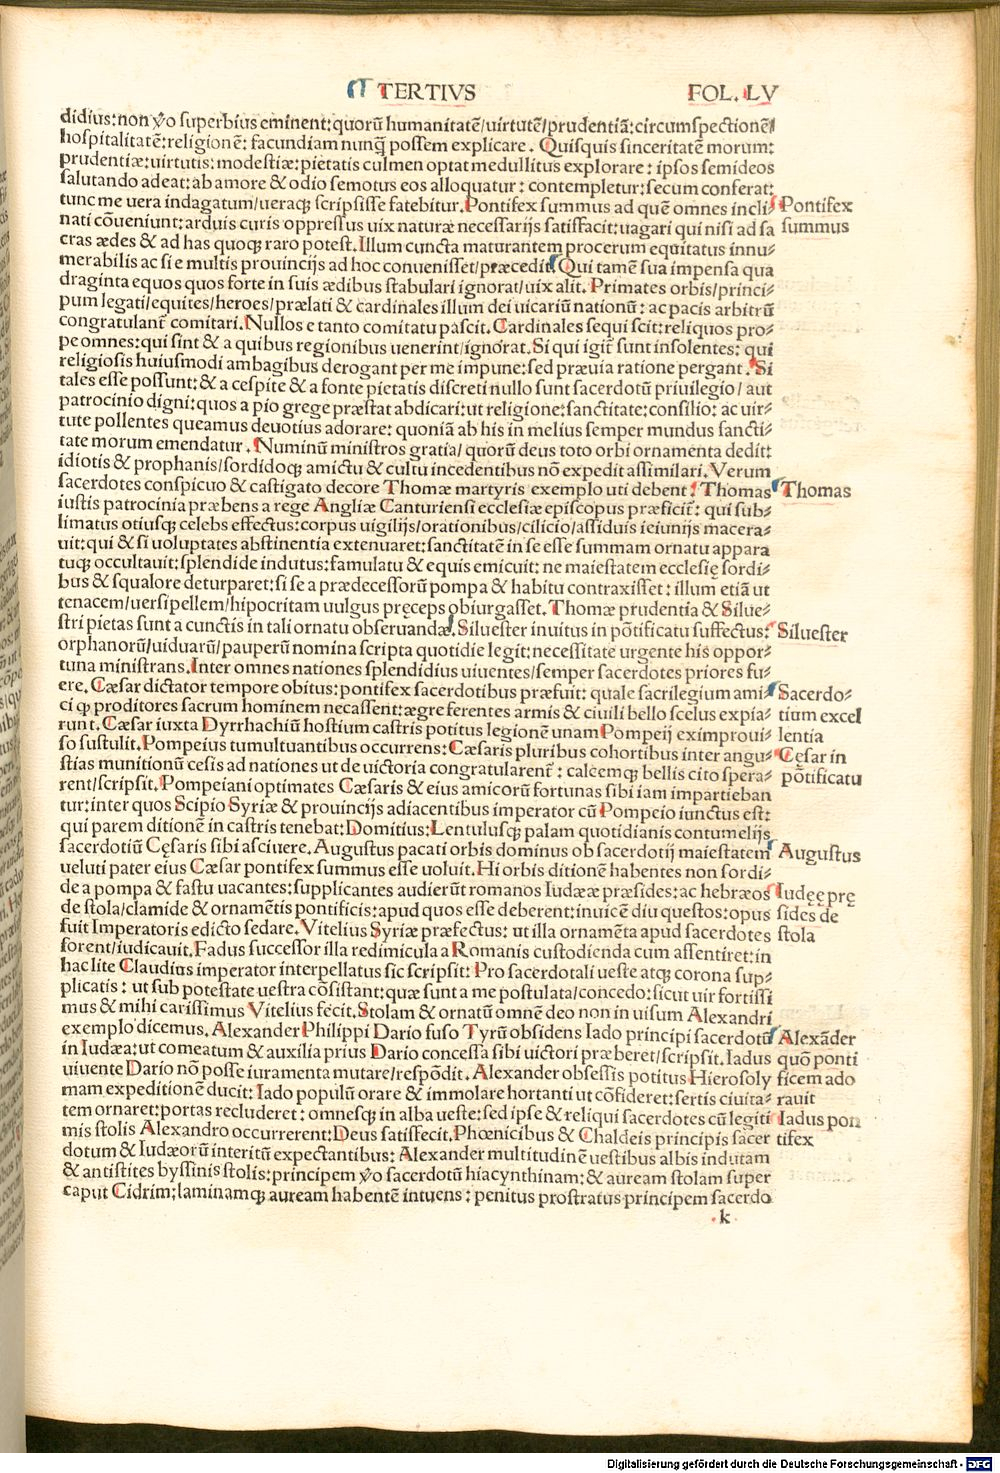 TERTIVS FOL. LV
didius: non ṽo superbius eminent: quorū humanitatē/uirtutē/prudentiā: circumspectionē/
hospitalitatē: religionē: facundiam nunq̃ possem explicare. Quisquis sinceritatem morum:
prudentiæ: uirtutis: modestiæ: pietatis culmen optat medullitus explorare: ipsos semideos
salutando adeat: ab amore & odio semotus eos alloquatur: contempletur: secum conferat:
tunc me uera indagatum/ueraq; scripsisse fatebitur. Pontifex summus ad quē omnes incli⸗ Pontifex
nati cōueniunt: arduis curis oppressus uix naturæ necessarijs satisfacit: uagari qui nisi ad sa summus
cras ædes & ad has quoq; raro potest. Illum cuncta maturantem procerum equitatus innu⸗
merabilis ac si e multis prouincijs ad hoc conuenisset/præcedit. Qui tamē sua impensa qua
draginta equos quos forte in suis ædibus stabulari ignorat/uix alit. Primates orbis/princi⸗
pum legati/equites/heroes/prælati & cardinales illum dei uicariū nationū: ac pacis arbitrū
congratulant̃ comitari. Nullos e tanto comitatu pascit. Cardinales sequi scit: reliquos pro⸗
pe omnes: qui sint & a quibus regionibus uenerint/ignorat. Si qui igit̃ sunt insolentes: qui
religiosis huiusmodi ambagibus derogant per me impune: sed præuia ratione pergant. Si
tales esse possunt: & a cespite & a fonte pietatis discreti nullo sunt sacerdotū priuilegio/aut
patrocinio digni: quos a pio grege præstat abdicari: ut religione: sanctitate: consilio: ac uir⸗
tute pollentes queamus deuotius adorare: quoniā ab his in melius semper mundus sancti⸗
tate morum emendatur. Numinū ministros gratia/quorū deus toto orbi ornamenta dedit:
idiotis & prophanis/sordidoq; amictu & cultu incedentibus nō expedit assimilari. Verum
sacerdotes conspicuo & castigato decore Thomæ martyris exemplo uti debent: Thomas Thomas
iustis patrocinia præbens a rege Angliæ Canturiensi ecclesiæ episcopus præficit̃: qui sub⸗
limatus otiusq; celebs effectus: corpus uigilijs/orationibus/cilicio/assiduis ieiunijs macera⸗
uit: qui & si uoluptates abstinentia extenuaret: sanctitatē in se esse summam ornatu appara
tuq; occultauit: splendide indutus: famulatu & equis emicuit: ne maiestatem ecclesię sordi⸗
bus & squalore deturparet: si se a prædecessorū pompa & habitu contraxisset: illum etiā ut
tenacem/uersipellem/hipocritam uulgus pręceps obiurgasset. Thomæ prudentia & Silue⸗
stri pietas sunt a cunctis in tali ornatu obseruandæ. Siluester inuitus in pōtificatu suffectus: Siluester
orphanorū/uiduarū/pauperū nomina scripta quotidie legit: necessitate urgente his oppor⸗
tuna ministrans. Inter omnes nationes splendidius uiuentes/semper sacerdotes priores fu⸗
ere. Cæsar dictator tempore obitus: pontifex sacerdotibus præfuit: quale sacrilegium ami⸗ Sacerdo⸗
ci q̢ proditores sacrum hominem necassent: ægre ferentes armis & ciuili bello scelus expia⸗ tium excel
runt. Cæsar iuxta Dyrrhachiū hostium castris potitus legionē unam Pompeij eximproui⸗ lentia
so sustulit. Pompeius tumultuantibus occurrens: Cæsaris pluribus cohortibus inter angu⸗ Cęsar in
stias munitionū cesis ad nationes ut de uictoria congratularent̃: calcemq; bellis cito spera⸗ pōtificatu
rent/scripsit. Pompeiani optimates Cæsaris & eius amicorū fortunas sibi iam impartieban
tur: inter quos Scipio Syriæ & prouincijs adiacentibus imperator cū Pompeio iunctus est:
qui parem ditionē in castris tenebat: Domitius: Lentulusq; palam quotidianis contumelijs
sacerdotiū Cęsaris sibi asciuere. Augustus pacati orbis dominus ob sacerdotij maiestatem Augustus
ueluti pater eius Cæsar pontifex summus esse uoluit. Hi orbis ditionē habentes non sordi⸗
de a pompa & fastu uacantes: supplicantes audierūt romanos Iudææ præsides: ac hebræos Iudeę prę
de stola/clamide & ornamētis pontificis: apud quos esse deberent: inuicē diu questos: opus sides de
fuit Imperatoris edicto sedare. Vitelius Syriæ præfectus: ut illa ornamēta apud sacerdotes stola
forent/iudicauit. Fadus successor illa redimicula a Romanis custodienda cum assentiret: in
hac lite Claudius imperator interpellatus sic scripsit: Pro sacerdotali ueste atq; corona sup⸗
plicatis: ut sub potestate uestra cōsistant: quæ sunt a me postulata/concedo: sicut uir fortissi
mus & mihi carissimus Vitelius fecit. Stolam & ornatū omnē deo non in uisum Alexandri
exemplo dicemus. Alexander Philippi Dario fuso Tyrū obsidens Iado principi sacerdotū Alexāder
in Iudæa: ut comeatum & auxilia prius Dario concessa sibi uictori præberet/scripsit. Iadus quō ponti
uiuente Dario nō posse iuramenta mutare/respōdit. Alexander obsessis potitus Hierosoly ficem ado
mam expeditionē ducit: Iado populū orare & immolare hortanti ut cōfideret: sertis ciuita⸗ rauit
tem ornaret: portas recluderet: omnesq; in alba ueste: sed ipse & reliqui sacerdotes cū legiti Iadus pon
mis stolis Alexandro occurrerent: Deus satisfecit. Phœnicibus & Chaldeis principis sacer tifex
dotum & Iudæorū interitū expectantibus: Alexander multitudinē uestibus albis indutam
& antistites byssinis stolis: principem ṽo sacerdotū hiacynthinam: & auream stolam super
caput Cidrim: laminamq; auream habentē intuens: penitus prostratus principem sacerdo
. k
Digitalisierung gefördert durch die Deutsche Forschungsgemeinschaft - DFG